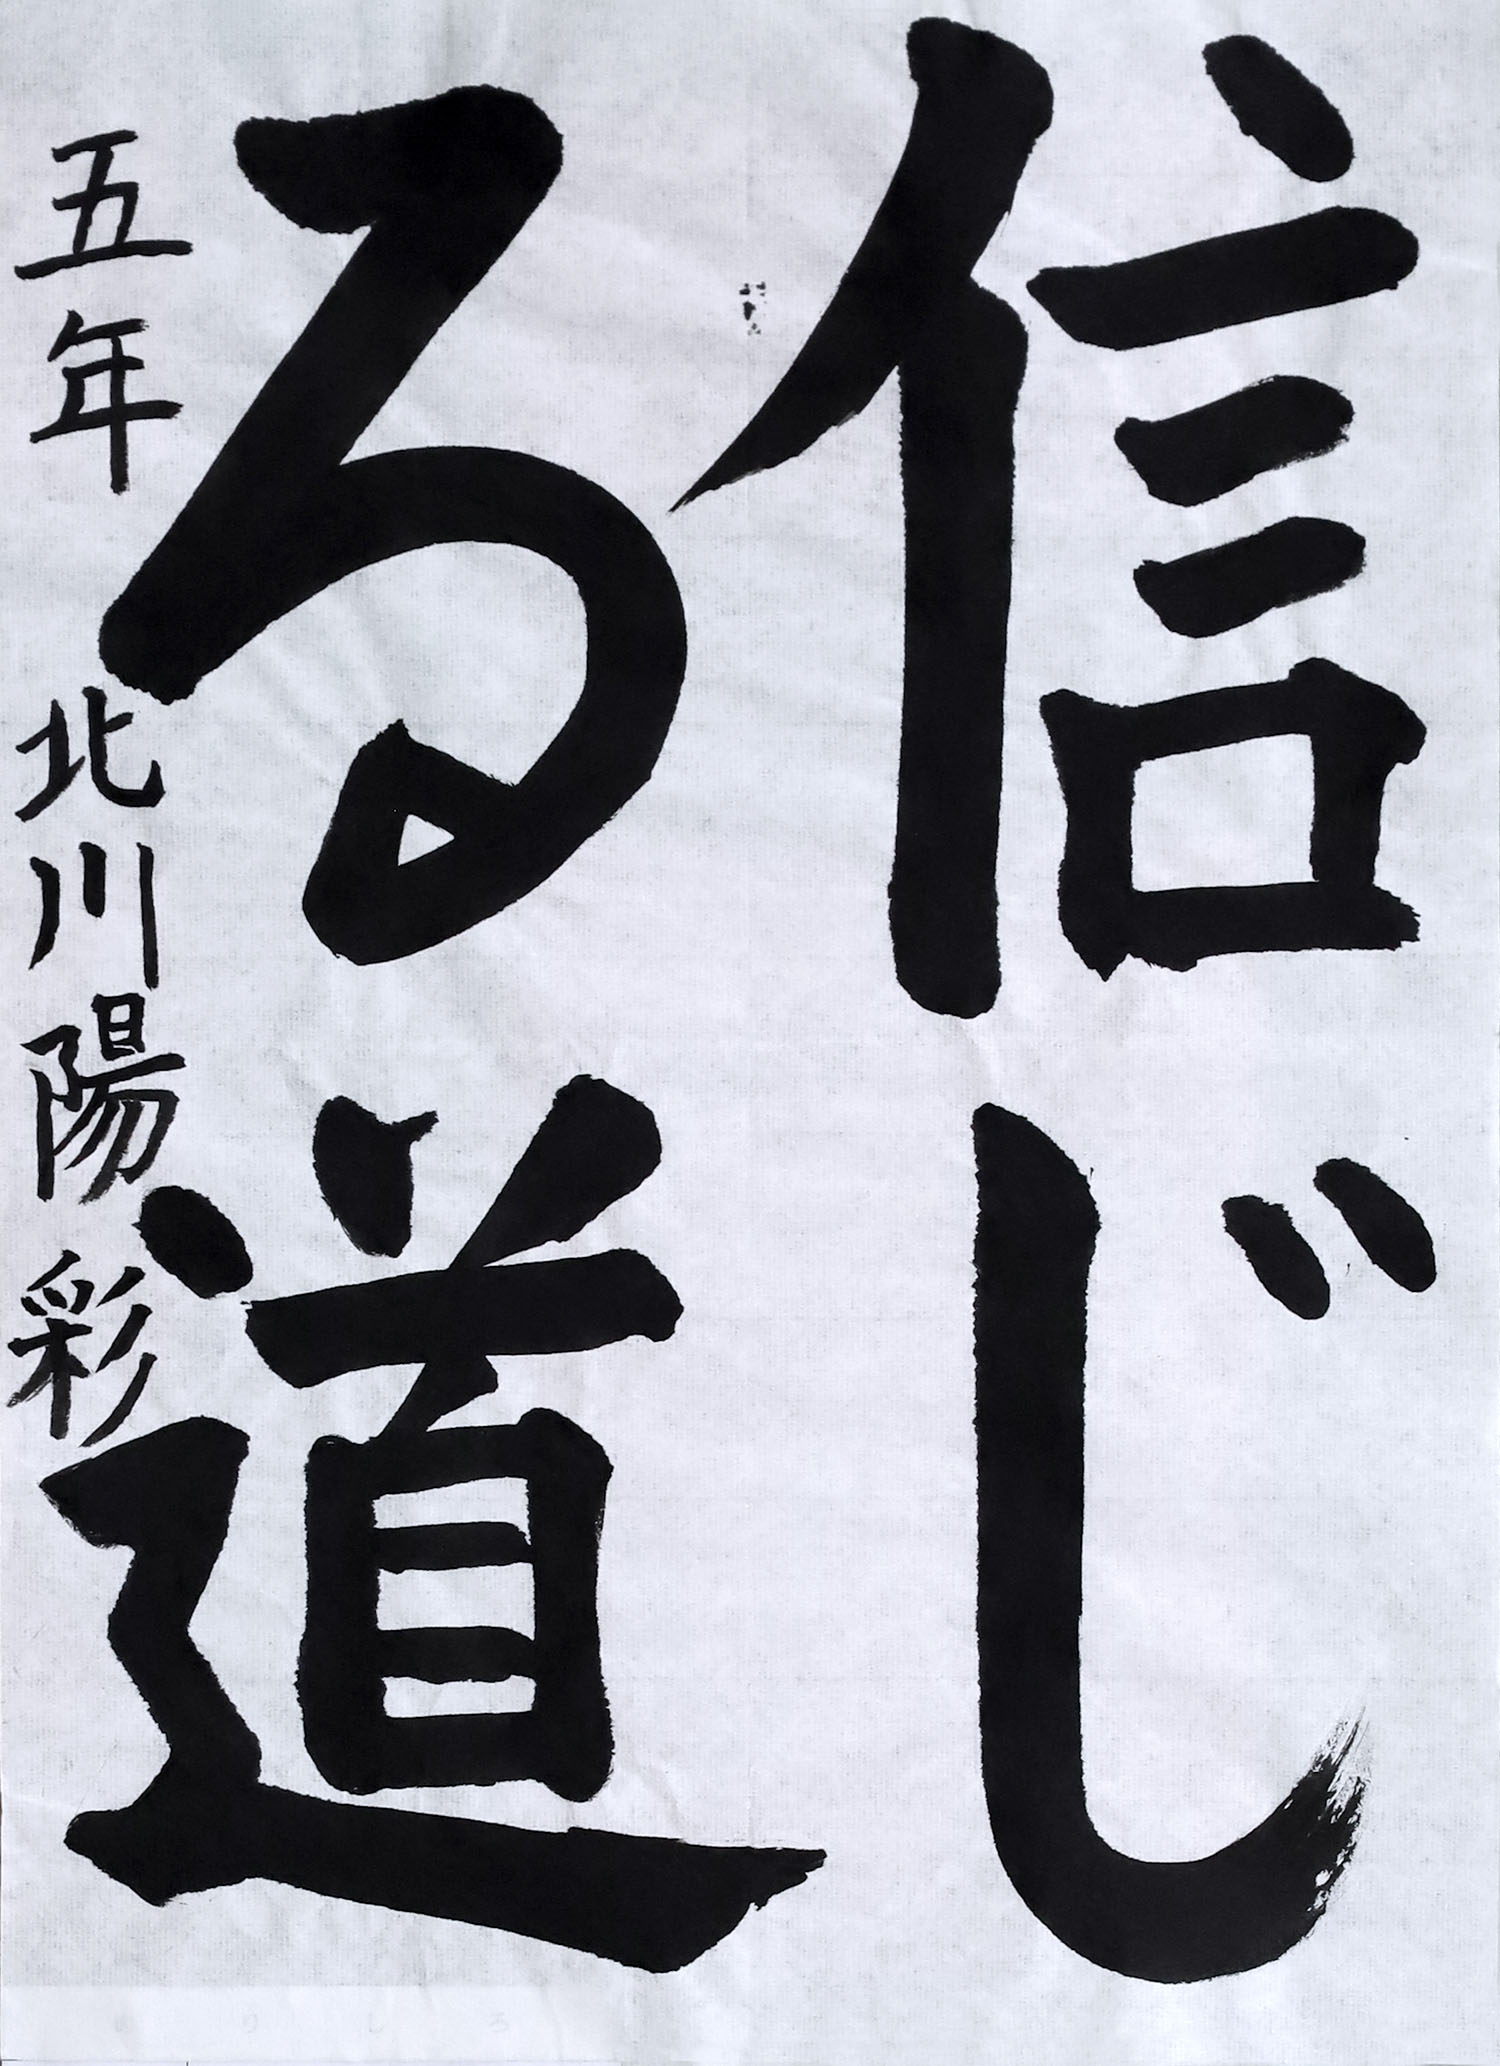 信じ
る道
五年 北川陽彩